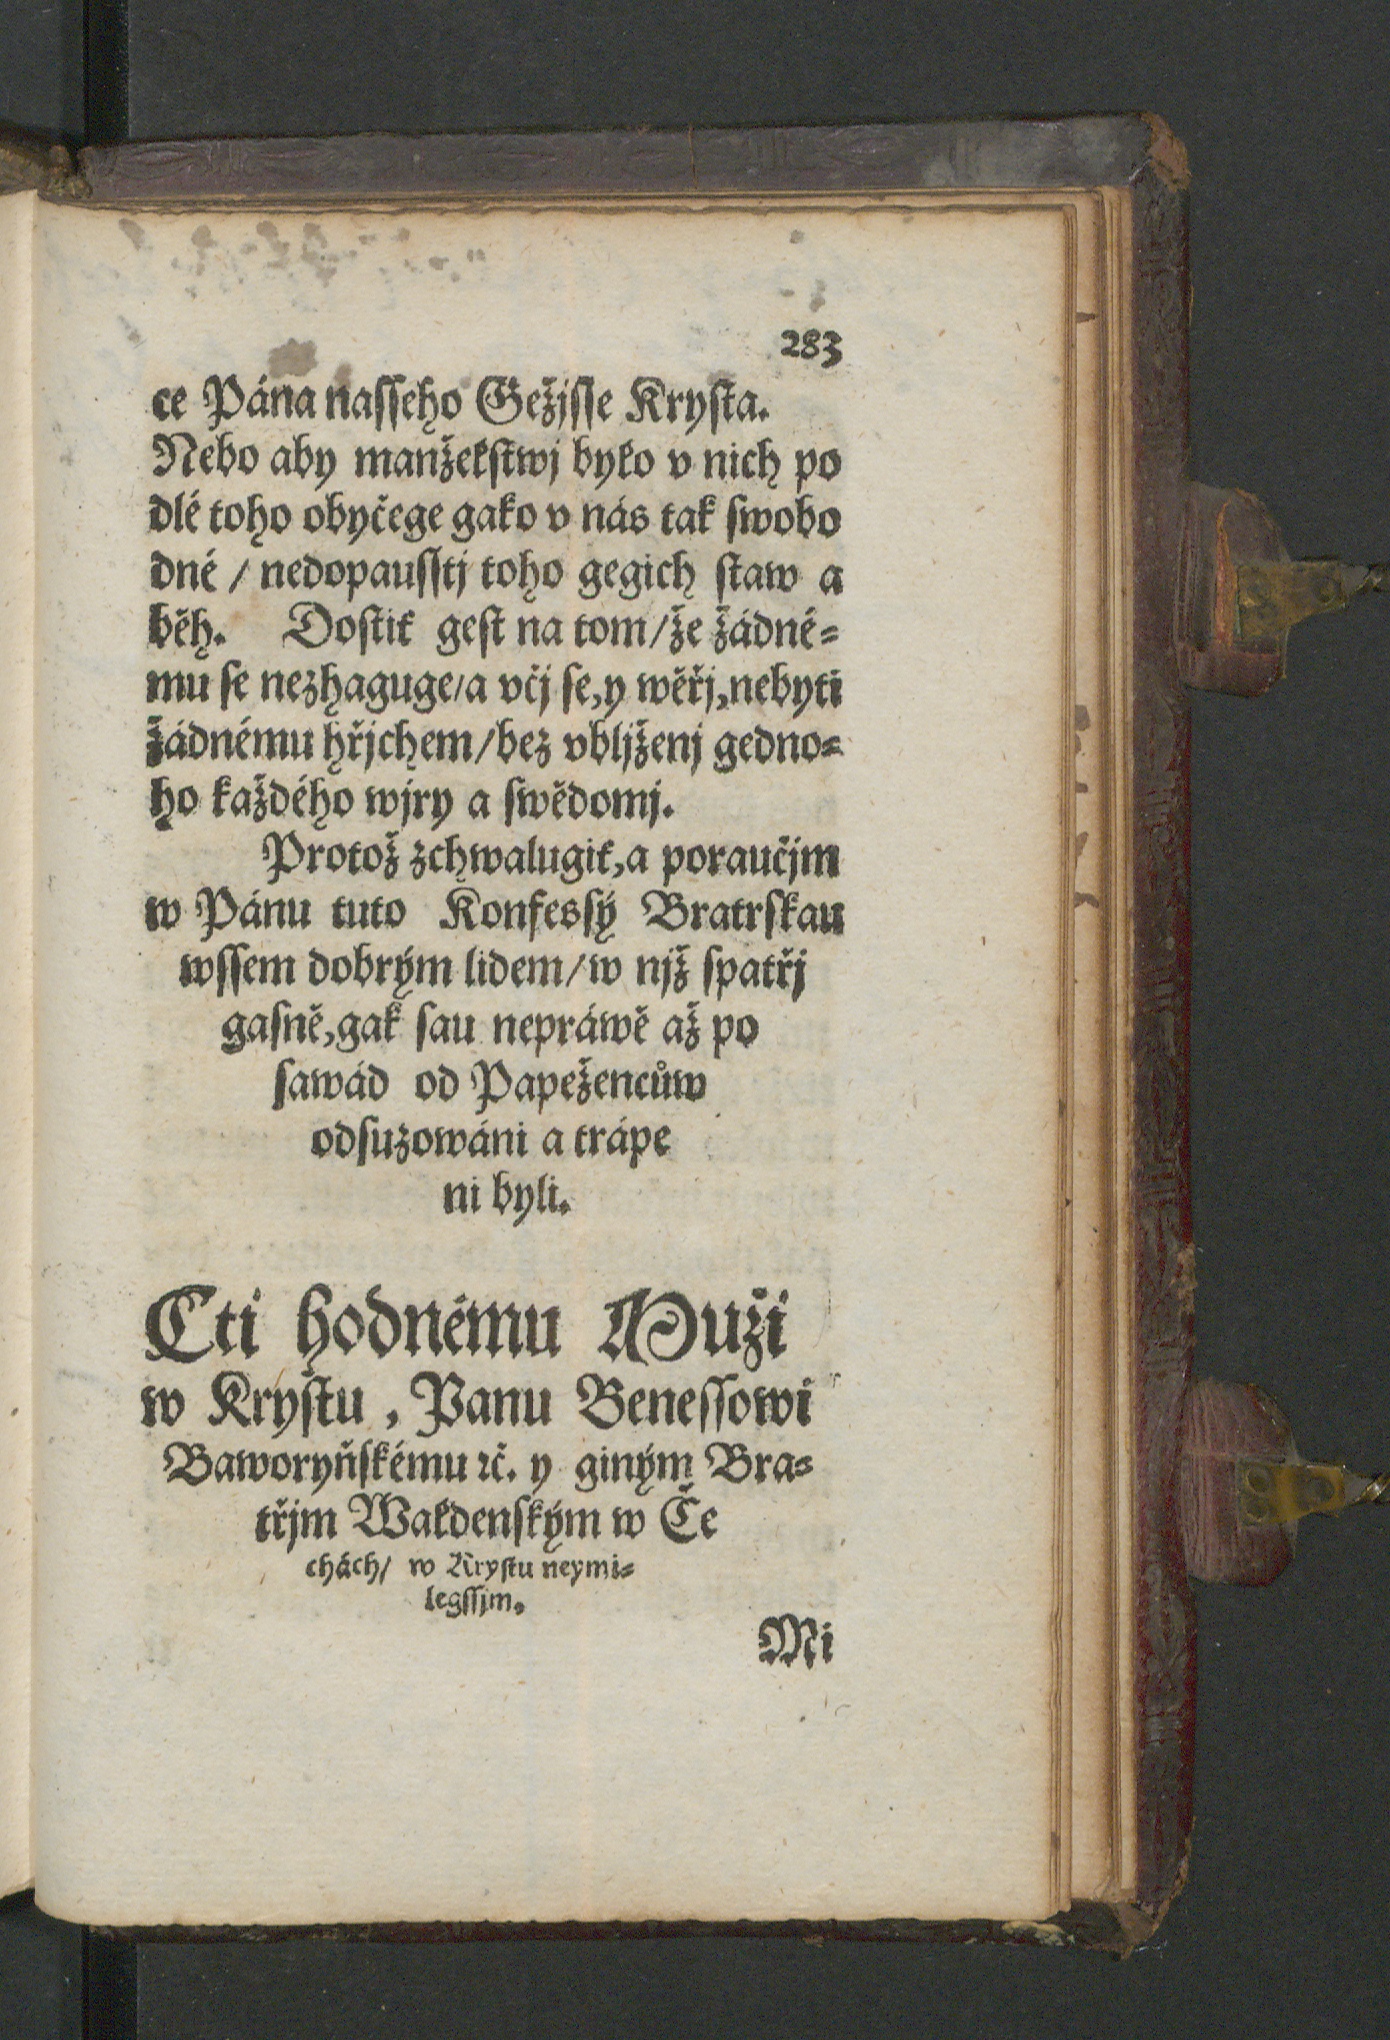 283
ce Pána nasseho Gežjsse Krysta.
Nebo aby manželstwj bylo v nich po
dlé toho obyčege gako v nás tak swobo
dné / nedopausstj toho gegich staw a
běh. Dostiť gest na tom / že žádné-
mu se nezhaguge / a včj se, y wěřj, nebyti
žádnému hřjchem / bez vbljženj gedno-
ho každého wjry a swědomj.
Protož zchwalugiť, a poraučjm
w Pánu tuto Konfessý Bratrskau
wssem dobrým lidem / w njž spatřj
gasně, gak sau nepráwě až po
sawád od Papeženců̊w
odsuzowáni a trápe
ni byli.
Cti hodnému Muži
w Krystu, Panu Benessowi
Baworyňskému ꝛč. y giným Bra-
třjm Waldenským w Če
chách / w Krystu neymi-
legssjm.
Mi